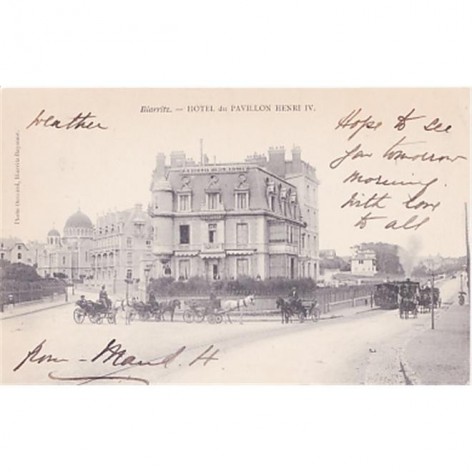 Biarritz. — HOTEL du PAVILLON HENRI IV.
weather
Hope to see
you tomorrow
morning.
With love
to all
from — Maud. H